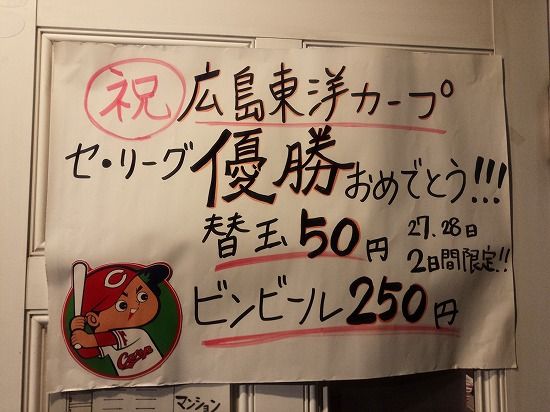 祝 広島東洋カープ
セ・リーグ優勝おめでとう!!!
替玉50円 27、28日
2日間限定!!
ビンビール250円
C
Carp
マンション